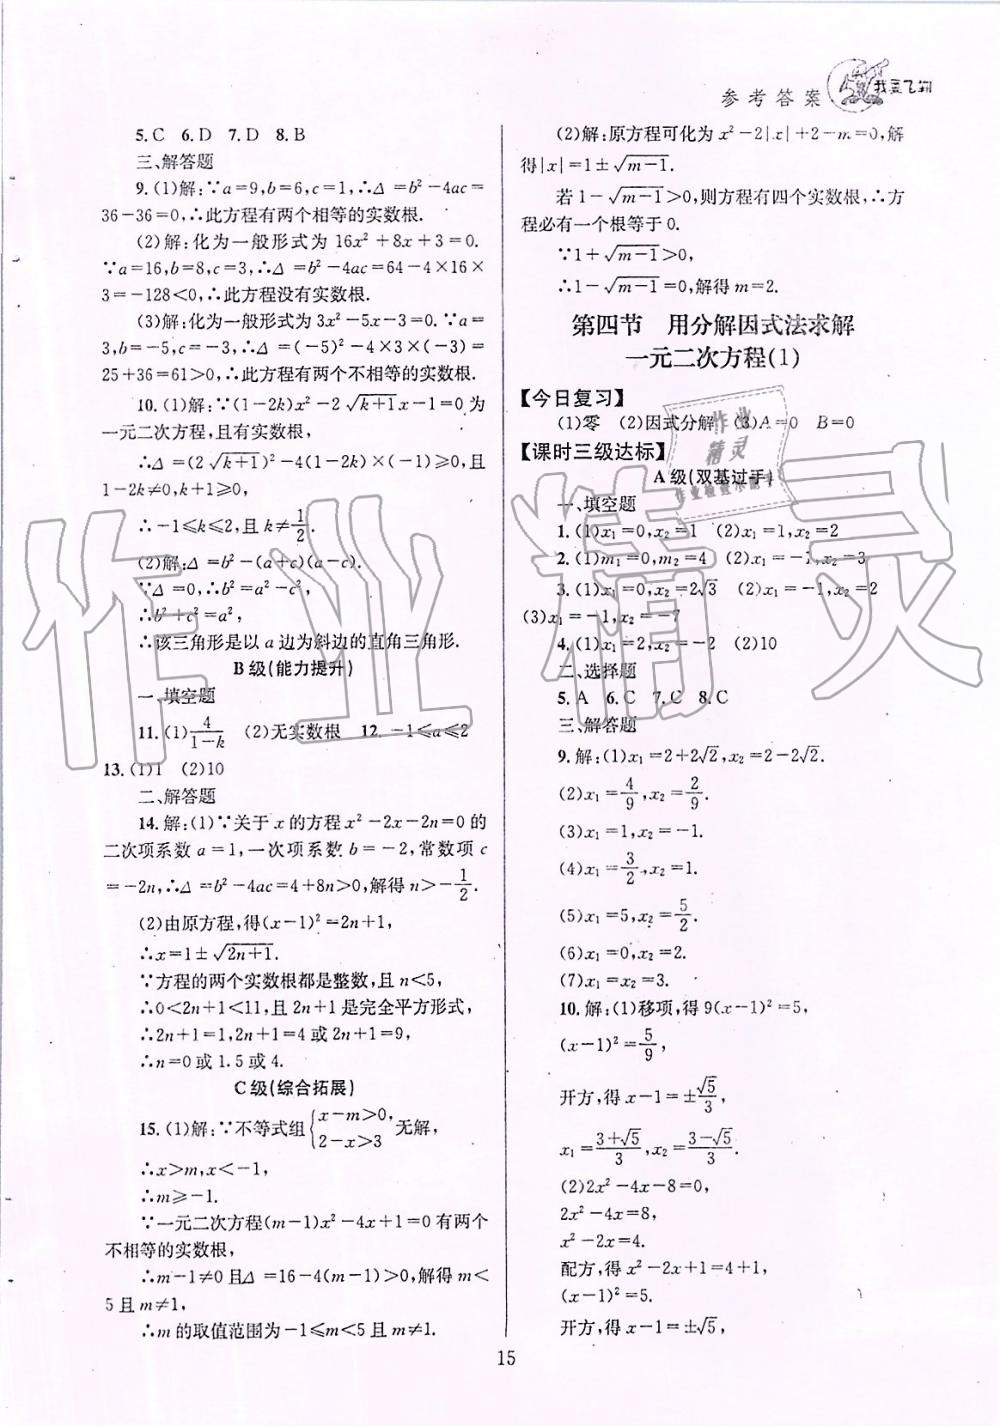 参考答案
我要飞翔
5.C 6.D 7.D 8.B
三、解答题
9.(1)解:∵a=9,b=6,c=1,∴Δ=b²-4ac=
36-36=0,∴此方程有两个相等的实数根.
(2)解:化为一般形式为 16x²+8x+3=0.
∵a=16,b=8,c=3,∴Δ=b²-4ac=64-4×16×
3=-128<0,∴此方程没有实数根.
(3)解:化为一般形式为 3x²-5x-3=0.∵a=
3,b=-5,c=-3,∴Δ=(-5)²-4×3×(-3)=
25+36=61>0,∴此方程有两个不相等的实数根.
10.(1)解:∵(1-2k)x²-2√(k+1)x-1=0为
一元二次方程,且有实数根,
∴Δ=(2√(k+1))²-4(1-2k)×(-1)≥0,且
1-2k≠0,k+1≥0,
∴-1≤k≤2,且k≠1/2.
(2)解:Δ=b²-(a+c)(a-c).
∵Δ=0,∴b²=a²-c²,
∴b²+c²=a²,
∴该三角形是以a边为斜边的直角三角形.
B级(能力提升)
一、填空题
11.(1)4/(1-k) (2)无实数根 12.-1≤a≤2
13.(1)1 (2)10
二、解答题
14.解:(1)∵关于x的方程x²-2x-2n=0的
二次项系数a=1,一次项系数b=-2,常数项c
=-2n,∴Δ=b²-4ac=4+8n>0,解得n>-1/2.
(2)由原方程,得(x-1)²=2n+1,
∴x=1±√(2n+1).
∵方程的两个实数根都是整数,且n<5,
∴0<2n+1<11,且2n+1是完全平方形式,
∴2n+1=1,2n+1=4或2n+1=9,
∴n=0或1.5或4.
C级(综合拓展)
15.(1)解:∵不等式组{x-m>0, 2-x>3 无解,
∴x>m,x<-1.
∴m≥-1.
∵一元二次方程(m-1)x²-4x+1=0有两个
不相等的实数根,
∴m-1≠0且Δ=16-4(m-1)>0,解得m<
5且m≠1,
∴m的取值范围为-1≤m<5且m≠1.
(2)解:原方程可化为x²-2|x|+2-m=0,解
得|x|=1±√(m-1).
若1-√(m-1)>0,则方程有四个实数根,∴方
程必有一个根等于0.
∵1+√(m-1)>0,
∴1-√(m-1)=0,解得m=2.
第四节 用分解因式法求解
一元二次方程(1)
【今日复习】
(1)零 (2)因式分解 (3)A=0 B=0
【课时三级达标】
A级(双基过手)
一、填空题
1.(1)x₁=0,x₂=1 (2)x₁=1,x₂=2
2.(1)m₁=0,m₂=4 (2)x₁=-1,x₂=3
3.(1)x₁=0,x₂=2√3 (2)x₁=-1,x₂=2
(3)x₁=-1,x₂=-7
4.(1)x₁=4,x₂=-2 (2)10
二、选择题
5.A 6.C 7.C 8.C
三、解答题
9.解:(1)x₁=2+2√2,x₂=2-2√2.
(2)x₁=4/9,x₂=2/9.
(3)x₁=1,x₂=-1.
(4)x₁=3/2,x₂=1.
(5)x₁=5,x₂=5/2.
(6)x₁=0,x₂=2.
(7)x₁=x₂=3.
10.解:(1)移项,得9(x-1)²=5,
(x-1)²=5/9,
开方,得x-1=±√5/3,
x₁=(3+√5)/3,x₂=(3-√5)/3.
(2)2x²-4x-8=0,
2x²-4x=8,
x²-2x=4.
配方,得x²-2x+1=4+1,
(x-1)²=5.
开方,得x-1=±√5,
15
作业精灵
作业
精灵